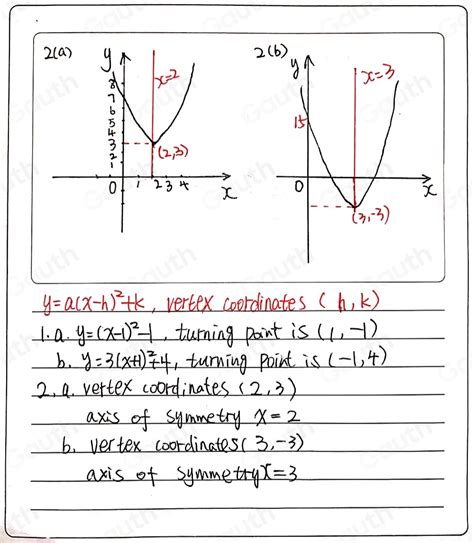 2(a)
y
x=2
8
7
6
5
4
3
2
1
(2,3)
0 1 2 3 4
x
2(b)
y
x=3
15
0
x
(3,-3)
y=a(x-h)²+k, vertex coordinates (h,k)
1.a. y=(x-1)²-1, turning point is (1,-1)
b. y=3(x+1)²+4, turning point is (-1,4)
2.a. vertex coordinates (2,3)
axis of symmetry x=2
b. vertex coordinates(3,-3)
axis of symmetry x=3
Gauth